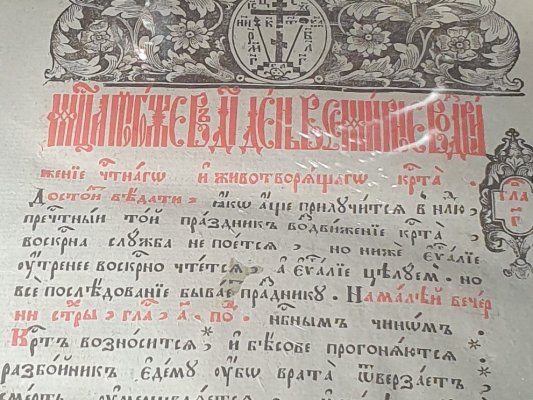 мц͡а тогѡже въ д͡і де́нь всеми́рное воздви́
же́нїе чⷭ҇тна́гѡ и҆ животворѧ́щагѡ крⷭ҇та̀
Досто́итъ вѣ́дати, ꙗ҆́кѡ а҆́ще прилꙋчи́тсѧ в нл҃ю,
пречтⷭ҇ны́й то́й пра́здникъ воздви́женїе крⷭ҇та̀,
воскрⷭ҇на слꙋ́жба не пое́тсѧ, но нижѐ є҆ѵⷢ҇лїе
ᲂу҆́тренее воскрⷭ҇но чте́тсѧ, а҆ є҆ѵⷢ҇лїе цѣлꙋ́ем. но
всѐ послѣ́дованїе быва́етъ пра́зднику. На ма́лѣй вече́р
ни стⷯры, гла́, а҃. по.
гла
и҆́бнымъ чи́нѡмъ.
Крⷭ҇тъ возно́ситсѧ, * и҆ бѣ́сове прогонѧ́ютсѧ *
разбо́йникъ є҆де́мꙋ ᲂу҆́бѡ врата̀ ѿверза́етъ,
сме́рть ᲂу҆мерщвлѧ́етсѧ